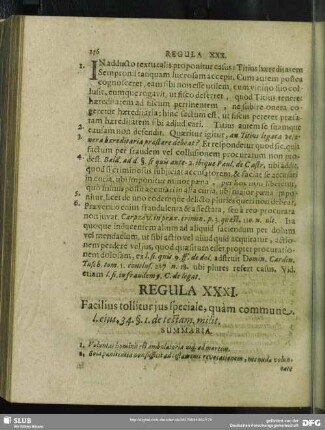 156 REGULA XXX.
1. IN adducto textu talis proponitur casus: Titius hæreditatem
Sempronii tanquam lucrosam accepit. Cum autem postea
cognosceret, eam sibi non esse utilem, cum vicino suo col-
lusit, eumque rogavit, ut fisco deferret, quod Titius teneret
hæreditatem ad fiscum pertinentem, ne subire onera co-
geretur hæreditaria; hinc factum, ut fiscus peteret præsta-
tam hæreditatem sibi adjudicari. Titius autem se suamque
2. causam non defendit. Quæritur igitur, an Titius legata
3. mera hereditaria præstare debeat? Et respondetur quod sic, quia
factum per fraudem vel collusionem procuratum non pro-
4. dest. Bald. ad d. §. si quis aute- 2. ibique Paul. de Castr. ubi addit,
quod si criminosus subjiciat accusatorem, & faciat se accusari
in curia, ubi imponitur minor pœna, per hoc non liberetur,
quo minus possit accusari in alia curia, ubi major pœna impo-
5. nitur, licet de uno eodemque delicto pluries quæri non debeat.
6. Præventio enim fraudulenta & affectata, seu à reo procurata
non juvat. Carpzov. in prax. crimin. p. 3. quæst. 110. n. ult. Ita
quoque inducentem alium ad aliquid faciendum per dolum
vel mendacium, ut sibi actio vel aliud quid acquiratur, actio-
nem perdere vel jus, quod quæsitum esset propter procuratio-
nem dolosam, ex l. si quis 9. ff. de dol. adstruit Domin. Cardin.
Tusch. tom. 1. conclus. 217. n. 18. ubi plures refert casus. Vid.
etiam l. si in fraudem 7. C. de legat.
REGULA XXXI.
Facilius tollitur jus speciale, quàm commune.
l. ejus, 34. §. 1. de testam. milit.
SUMMARIA.
1. Voluntas hominis est ambulatoria usq; ad mortem.
2. Sola pœnitentia non sufficit ad testamenti revocationem, nec nuda volun-
tate
SLUB
Wir führen Wissen.
gefördert von der
Deutschen Forschungsgemeinschaft